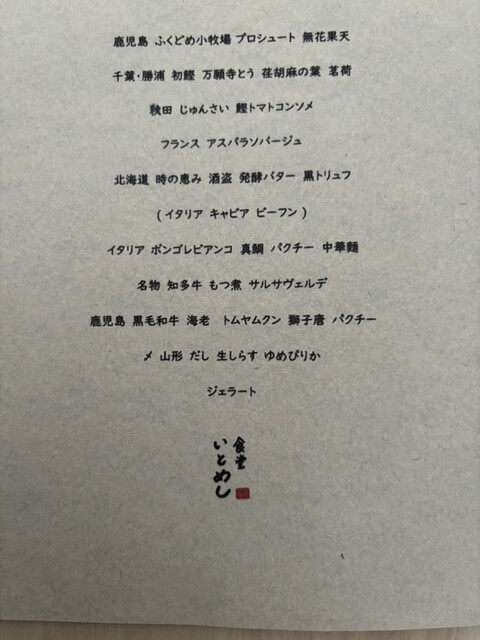 鹿児島 ふくどめ小牧場 プロシュート 無花果天
千葉・勝浦 初鰹 万願寺とう 荏胡麻の葉 茗荷
秋田 じゅんさい 鰹トマトコンソメ
フランス アスパラソバージュ
北海道 時の恵み 酒盗 発酵バター 黒トリュフ
(イタリア キャビア ビーフン)
イタリア ボンゴレビアンコ 真鯛 パクチー 中華麺
名物 知多牛 もつ煮 サルサヴェルデ
鹿児島 黒毛和牛 海老 トムヤムクン 獅子唐 パクチー
〆 山形 だし 生しらす ゆめぴりか
ジェラート
食堂
いとめし